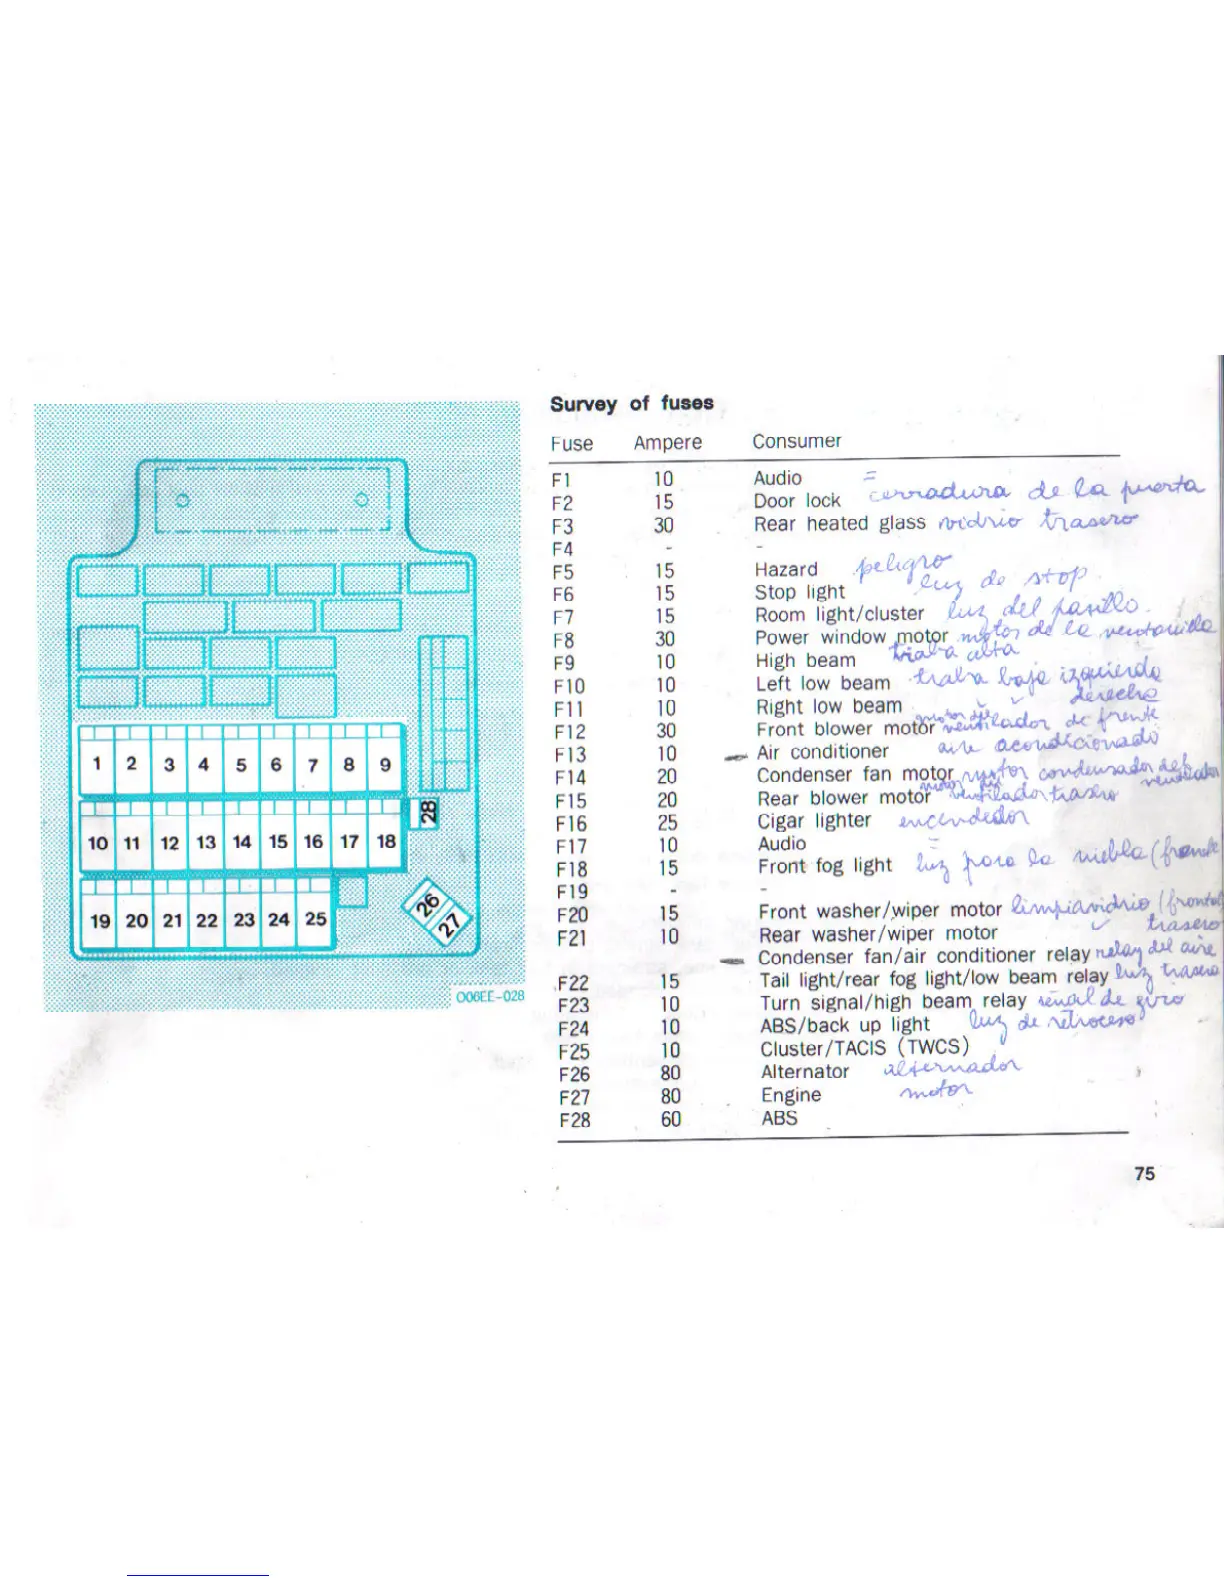 Survey of fuses
Fuse Ampere Consumer
F1 10 Audio =
F2 15 Door lock cerradura de la puerta
F3 30 Rear heated glass vidrio trasero
F4 - -
F5 15 Hazard peligro
F6 15 Stop light luz de stop
F7 15 Room light/cluster luz del pasillo.
F8 30 Power window motor motor de la ventanilla
F9 10 High beam traba alta
F10 10 Left low beam traba baja izquierda
F11 10 Right low beam derecha
F12 30 Front blower motor motor del ventilador de frente
F13 10 Air conditioner aire acondicionado
F14 20 Condenser fan motor motor condensador del ventilador
F15 20 Rear blower motor motor del ventilador trasero
F16 25 Cigar lighter encendedor
F17 10 Audio =
F18 15 Front fog light luz para la niebla (frente
F19 - -
F20 15 Front washer/wiper motor limpiavidrio (frontal
F21 10 Rear washer/wiper motor trasero
Condenser fan/air conditioner relay relay del aire
F22 15 Tail light/rear fog light/low beam relay luz trasera
F23 10 Turn signal/high beam relay señal de giro
F24 10 ABS/back up light luz de retroceso
F25 10 Cluster/TACIS (TWCS)
F26 80 Alternator alternador
F27 80 Engine motor
F28 60 ABS
1 2 3 4 5 6 7 8 9
28
10 11 12 13 14 15 16 17 18
26
27
19 20 21 22 23 24 25
O06EE-028
75